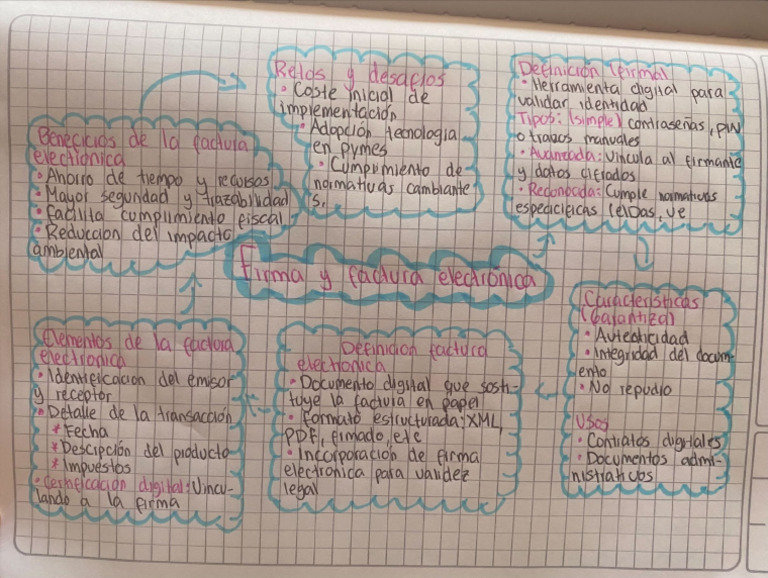 Firma y factura electronica
Definicion (firma)
• Herramienta digital para
validar identidad
Tipos: (simple) contraseñas, PIN
o trazos manuales
• Avanzada: Vincula al firmante
y datos cifrados
• Reconocida: Cumple normativas
especificas (eIDAS, UE
Caracteristicas
(Garantiza)
• Autenticidad
• Integridad del docum-
ento
• No repudio
Usos
• Contratos digitales
• Documentos admi-
nistrativos
Definicion factura
electronica
• Documento digital que susti-
tuye la factura en papel
• formato estructurada: XML,
PDF, firmado, etc
• Incorporacion de firma
electronica para validez
legal
Elementos de la factura
electronica
• Identificacion del emisor
y receptor
• Detalle de la transacción
* Fecha
* Descipción del producto
* Impuestos
• Certificacion digital: Vincu-
lando a la firma
Beneficios de la factura
electronica
• Ahorro de tiempo y recursos
• Mayor seguridad y trazabilidad
• facilita cumplimiento fiscal
• Reduccion del impacto
ambiental
Retos y desafios
• Coste inicial de
implementación
• Adopción tecnologia
en pymes
• Cumplimiento de
normativas cambiante
s.